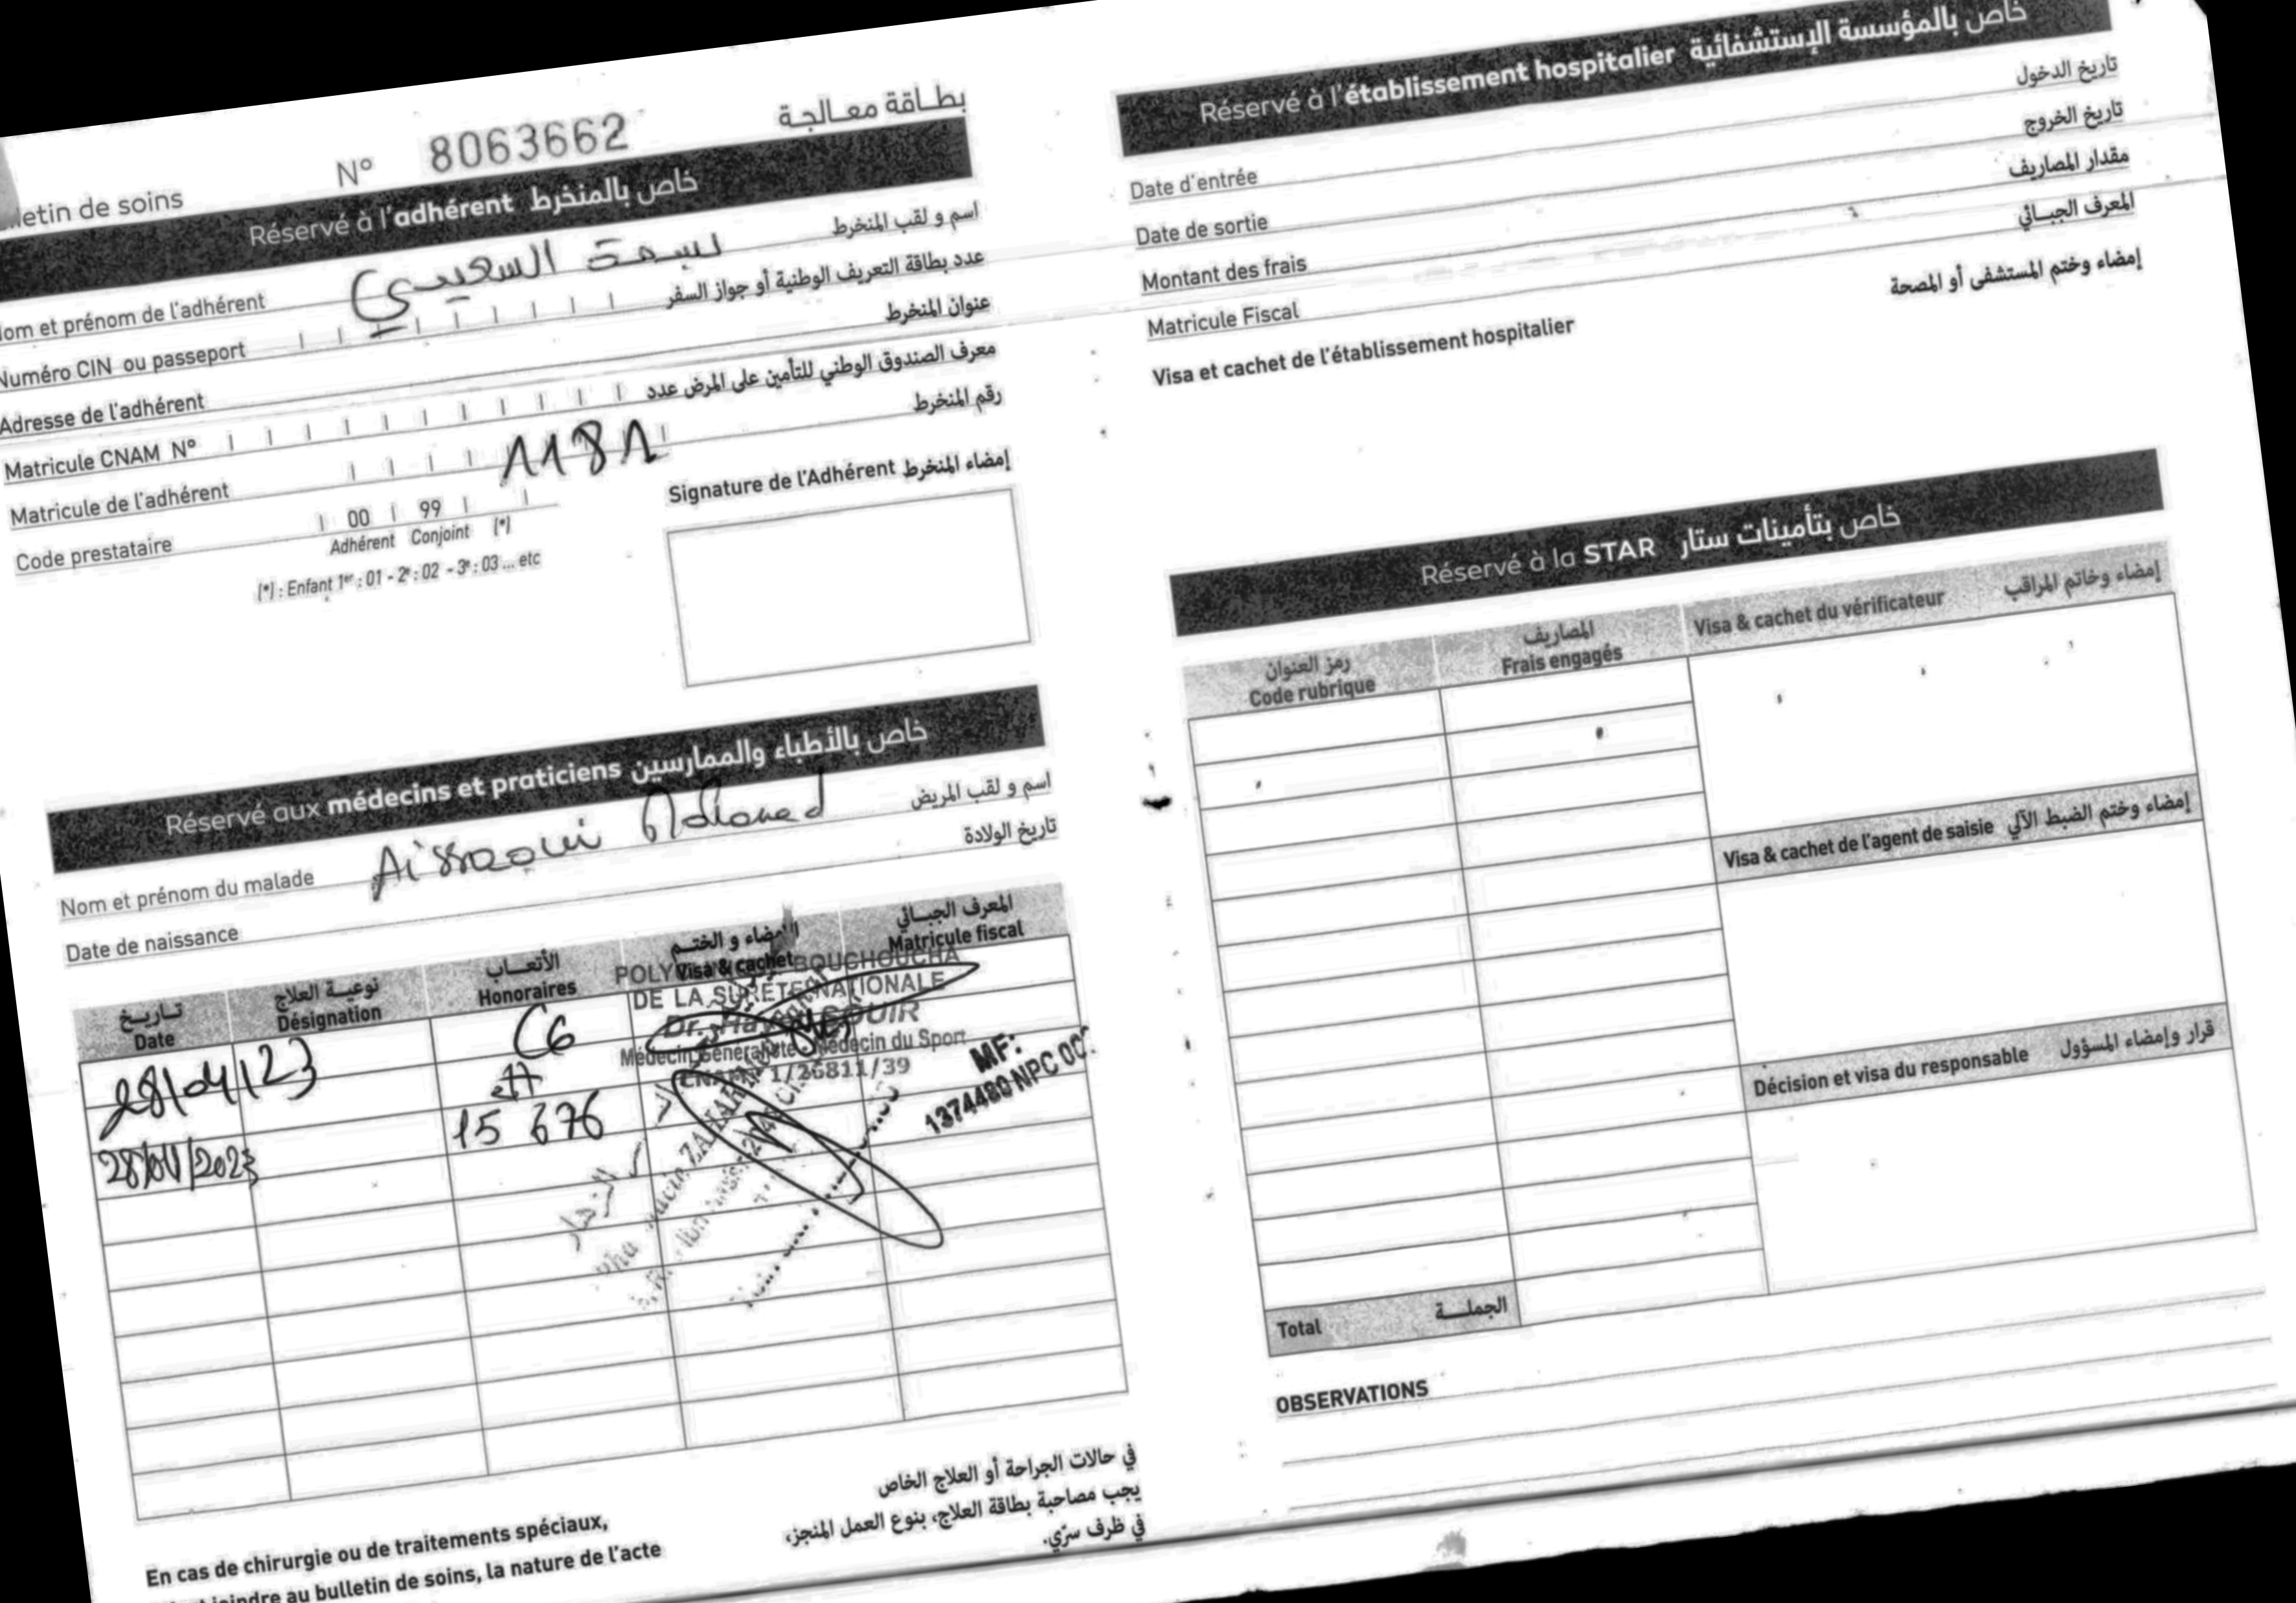 بطـاقة معـالجـة
N° 8063662
letin de soins
Réservé à l'adhérent خاص بالمنخرط
Nom et prénom de l'adhérent بسمة السعيدي اسم و لقب المنخرط
Numéro CIN ou passeport عدد بطاقة التعريف الوطنية أو جواز السفر
Adresse de l'adhérent عنوان المنخرط
Matricule CNAM N° معرف الصندوق الوطني للتأمين على المرض عدد
Matricule de l'adhérent 1181 رقم المنخرط
Code prestataire 00 99 (*)
Adhérent Conjoint
(*) : Enfant 1er : 01 - 2e : 02 - 3e : 03 ... etc
Signature de l'Adhérent إمضاء المنخرط
Réservé aux médecins et praticiens خاص بالأطباء والممارسين
Nom et prénom du malade Aissaoui Mohamed اسم و لقب المريض
Date de naissance تاريخ الولادة
تـاريـخ نوعيـة العلاج الأتعـاب الإمضاء و الختـم المعرف الجبـائي
Date Désignation Honoraires Visa & cachet Matricule fiscal
POLY BOUCHOUCHA
DE LA SURETE NATIONALE
28/04/23 C6 Dr.
Médecin Généraliste Médecin du Sport
CNAM 1/26811/39
28/04/2023 15 676
MF:
1374480 NPC 00
En cas de chirurgie ou de traitements spéciaux,
joindre au bulletin de soins, la nature de l'acte
في حالات الجراحة أو العلاج الخاص
يجب مصاحبة بطاقة العلاج، بنوع العمل المنجز،
في ظرف سرّي.
Réservé à l'établissement hospitalier خاص بالمؤسسة الإستشفائية
Date d'entrée تاريخ الدخول
Date de sortie تاريخ الخروج
Montant des frais مقدار المصاريف
Matricule Fiscal المعرف الجبـائي
Visa et cachet de l'établissement hospitalier إمضاء وختم المستشفى أو المصحة
Réservé à la STAR خاص بتأمينات ستار
رمز العنوان المصاريف
Code rubrique Frais engagés
Visa & cachet du vérificateur إمضاء وخاتم المراقب
Visa & cachet de l'agent de saisie إمضاء وختم الضبط الآلي
Décision et visa du responsable قرار وإمضاء المسؤول
Total الجملـــة
OBSERVATIONS